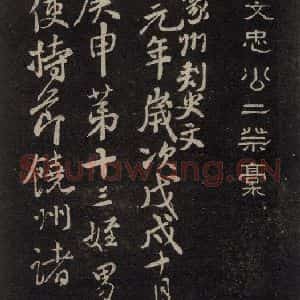 文忠公二祭稾
豪州刺史文
元年歲次戊戌十月
庚申第十三姪男
使持節饒州諸
Shufawang.CN